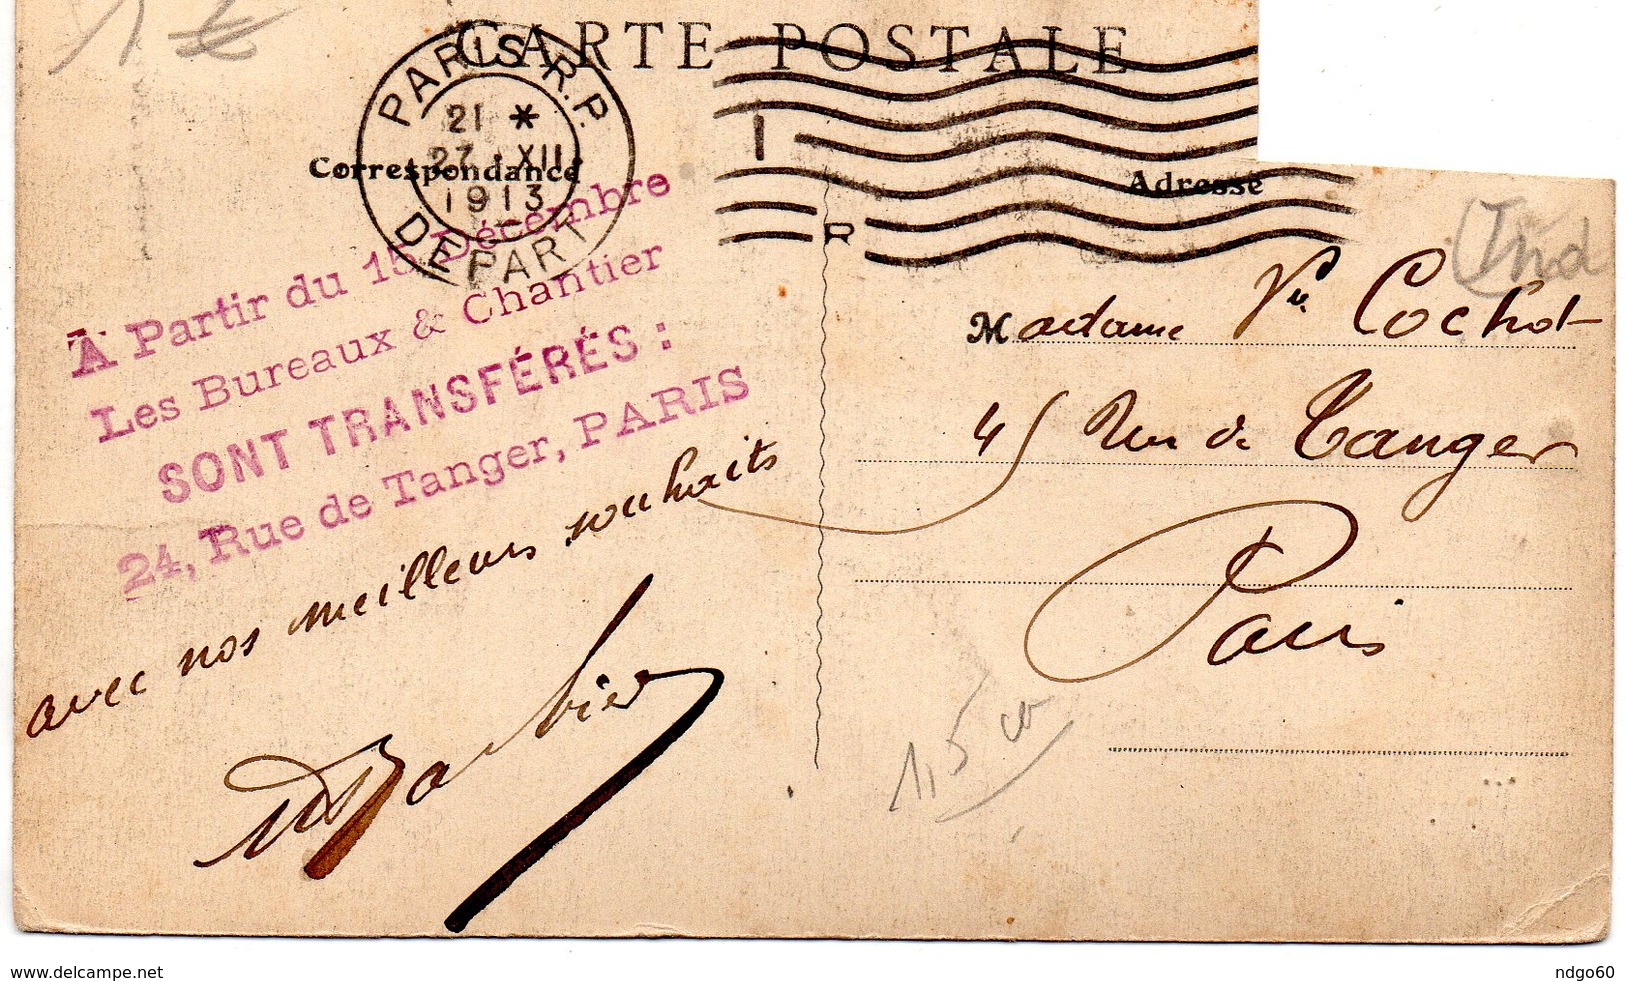 CARTE POSTALE
PARIS R.P.
21 *
27 XII
1913
DEPART
Correspondance
Adresse
R
(Ind
À Partir du 15 Décembre
Les Bureaux & Chantier
SONT TRANSFÉRÉS :
24, Rue de Tanger, PARIS
avec nos meilleurs souhaits
Barbier
Madame Vve Cochot
45 Rue de Tanger
Paris
1,5
www.delcampe.net
ndgo60